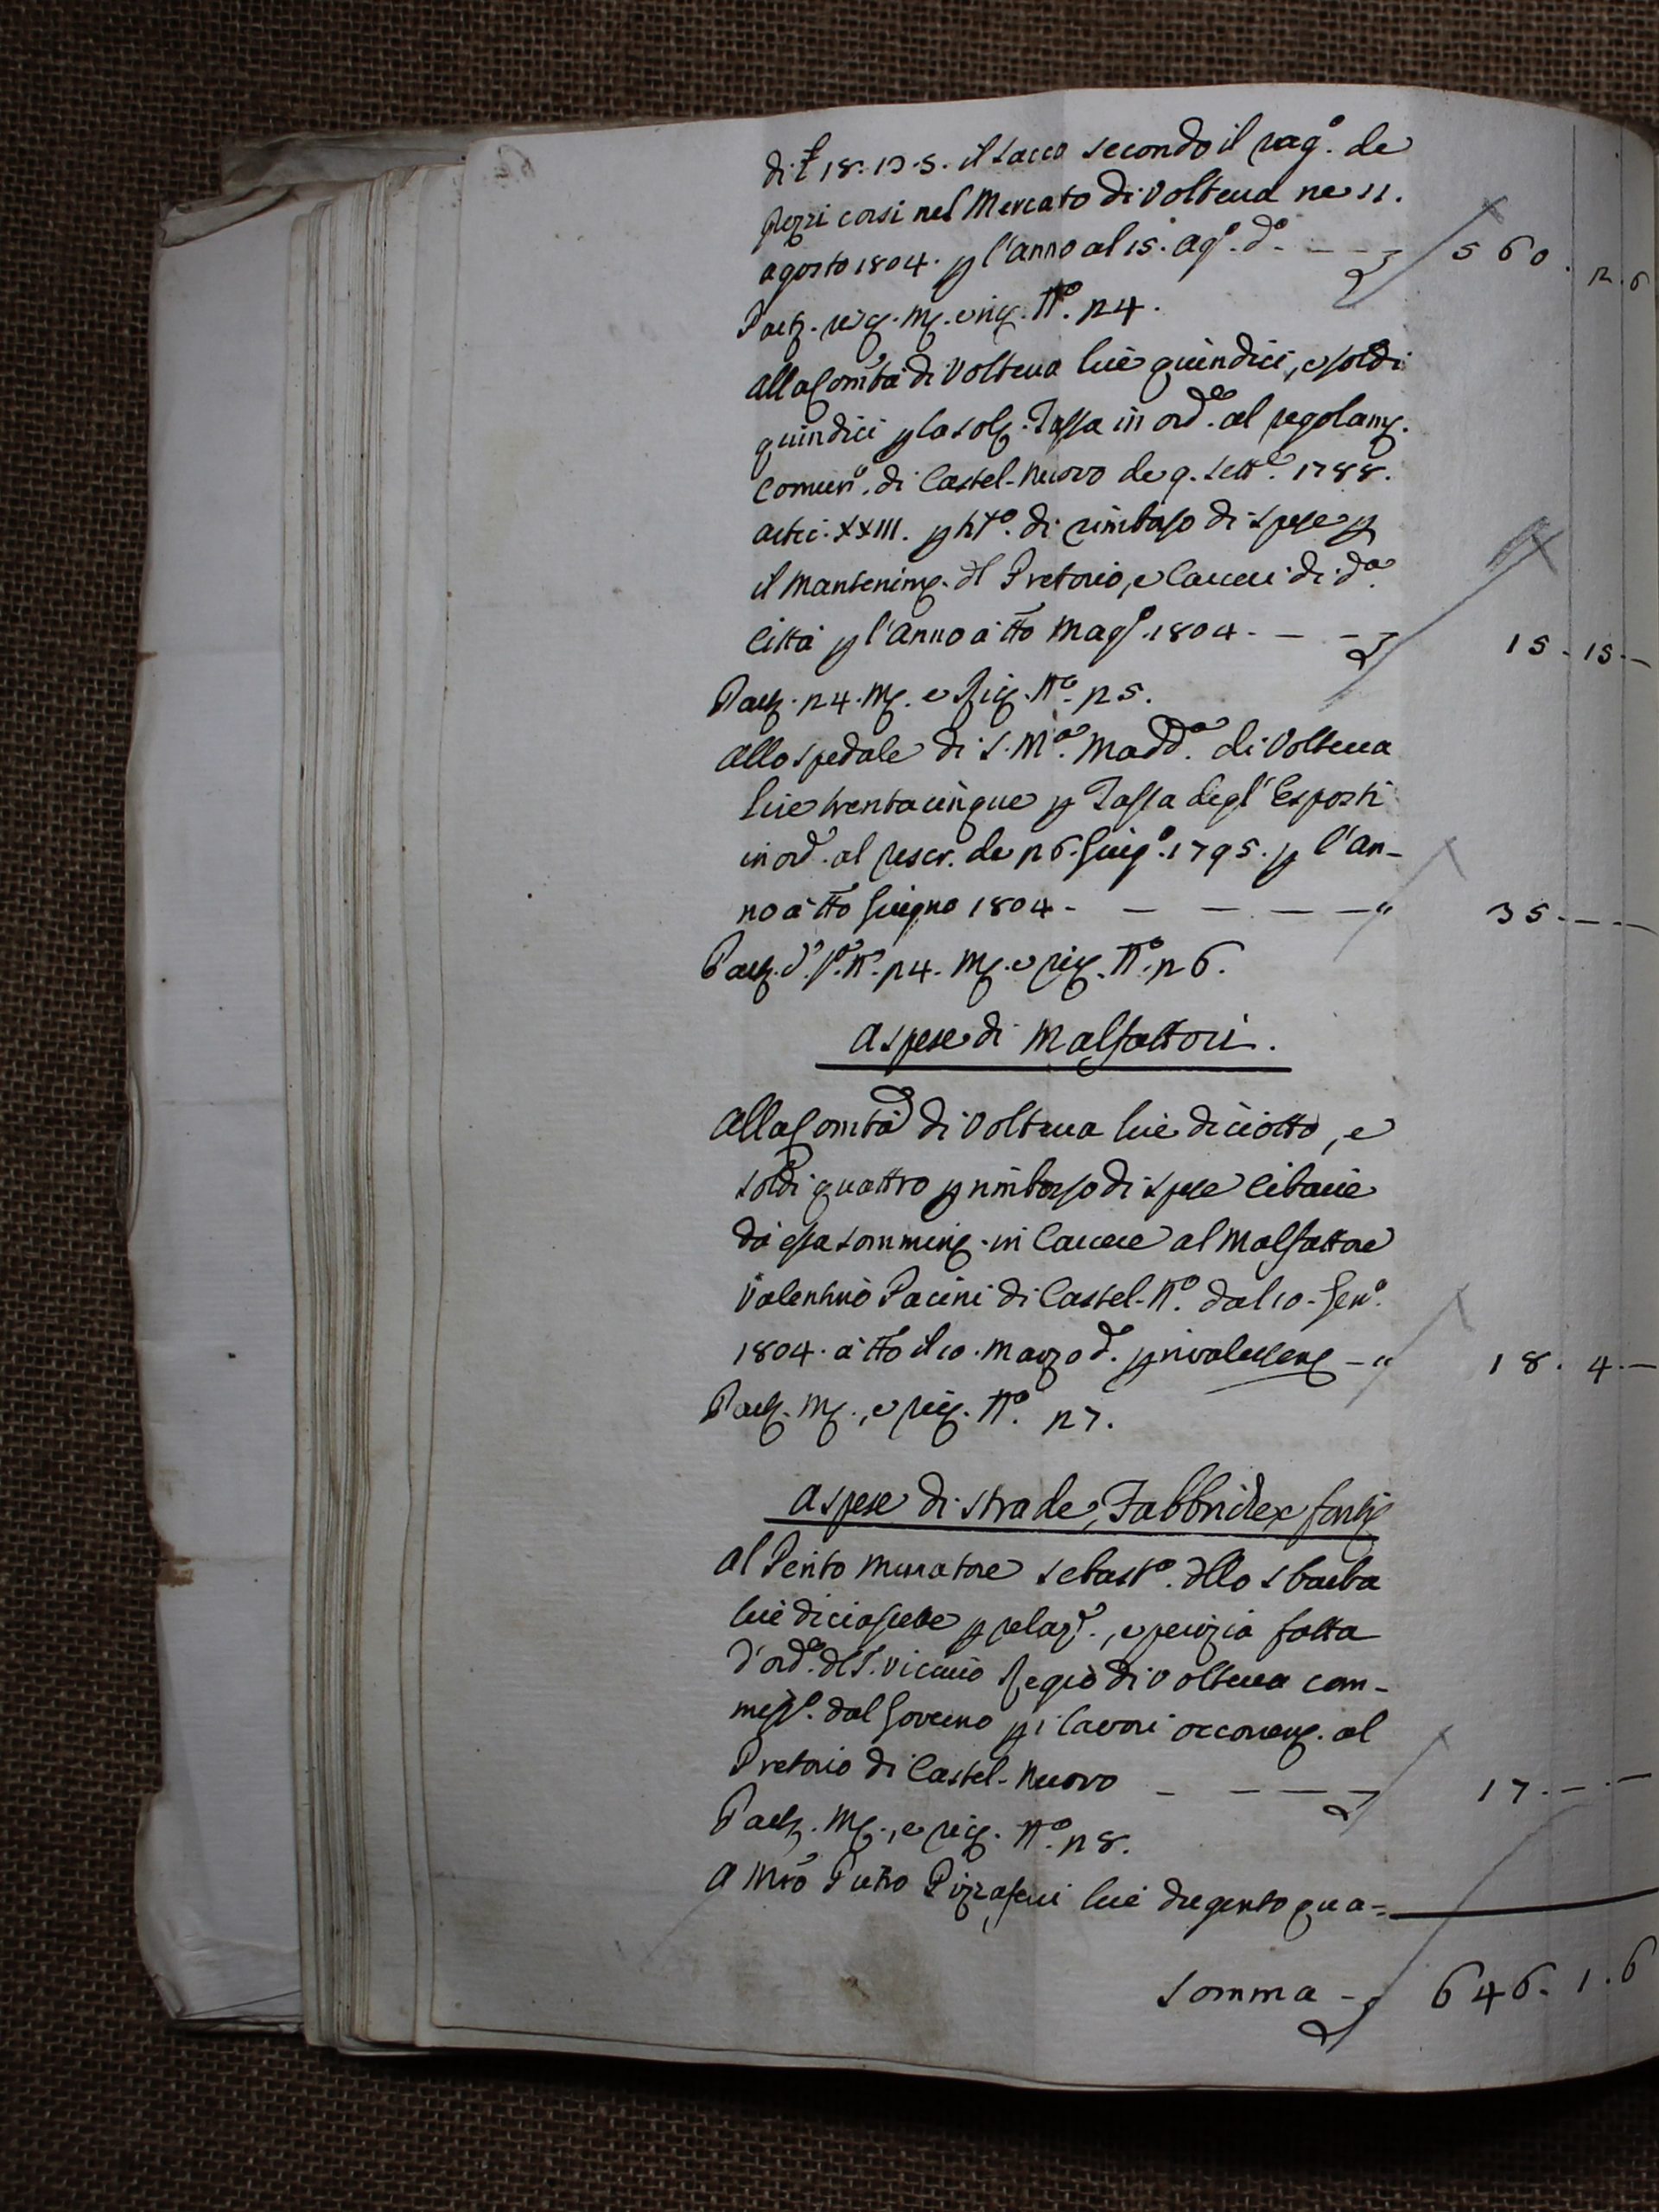 di £ 18. 13. 5. il sacco secondo il rag.º de
prezzi corsi nel Mercato di Volterra ne 11.
agosto 1804. p l'anno al 15. Ag.º d.º - - - 560. 12. 6
N.º 24.
Alla Comtà di Volterra lire quindici, e soldi
quindici p la sol. Tassa in ord.e al regolam.
Comun.º di Castel-nuovo de 9. Sett.e 1788.
artic. XXIII. p tit.º di rimborso di spese p
il mantenim. dl Pretorio, e Carceri di d.a
Città p l'anno a tto Mag.º 1804 - - - 15. 15. -
24. M. e Rig. N.º 25.
Allo spedale di S. M.a Madd.a di Volterra
lire trentacinque p Tassa degl' Esposti
in ord. al rescr. de 26. Giug.º 1795. p l'an-
no a tto Giugno 1804 - - - - - " 35. - -
N.º 24. M. e rig. N.º 26.
A spese di Malfattori.
Alla Comtà di Volterra lire diciotto, e
soldi quattro p rimborso di spese cibarie
da essa sommin. in Carcere al Malfattore
Valentino Pacini di Castel-N.º dal 10. Gen.º
1804. a tto il 10. Marzo d. - " 18. 4. -
M., e rig. N.º 27.
A spese di strade, Fabbriche
Al Perito muratore Sebast.º dllo Sbarba
lire diciassette p relaz.e, e perizia fatta
d'ord.e dl S. Vicario Regio di Volterra com-
mess.º dal Governo p i lavori occorren. al
Pretorio di Castel-nuovo - - - - 17. - -
M., e rig. N.º 28.
A Mro Pietro lire dugento qua=
Somma - 646. 1. 6